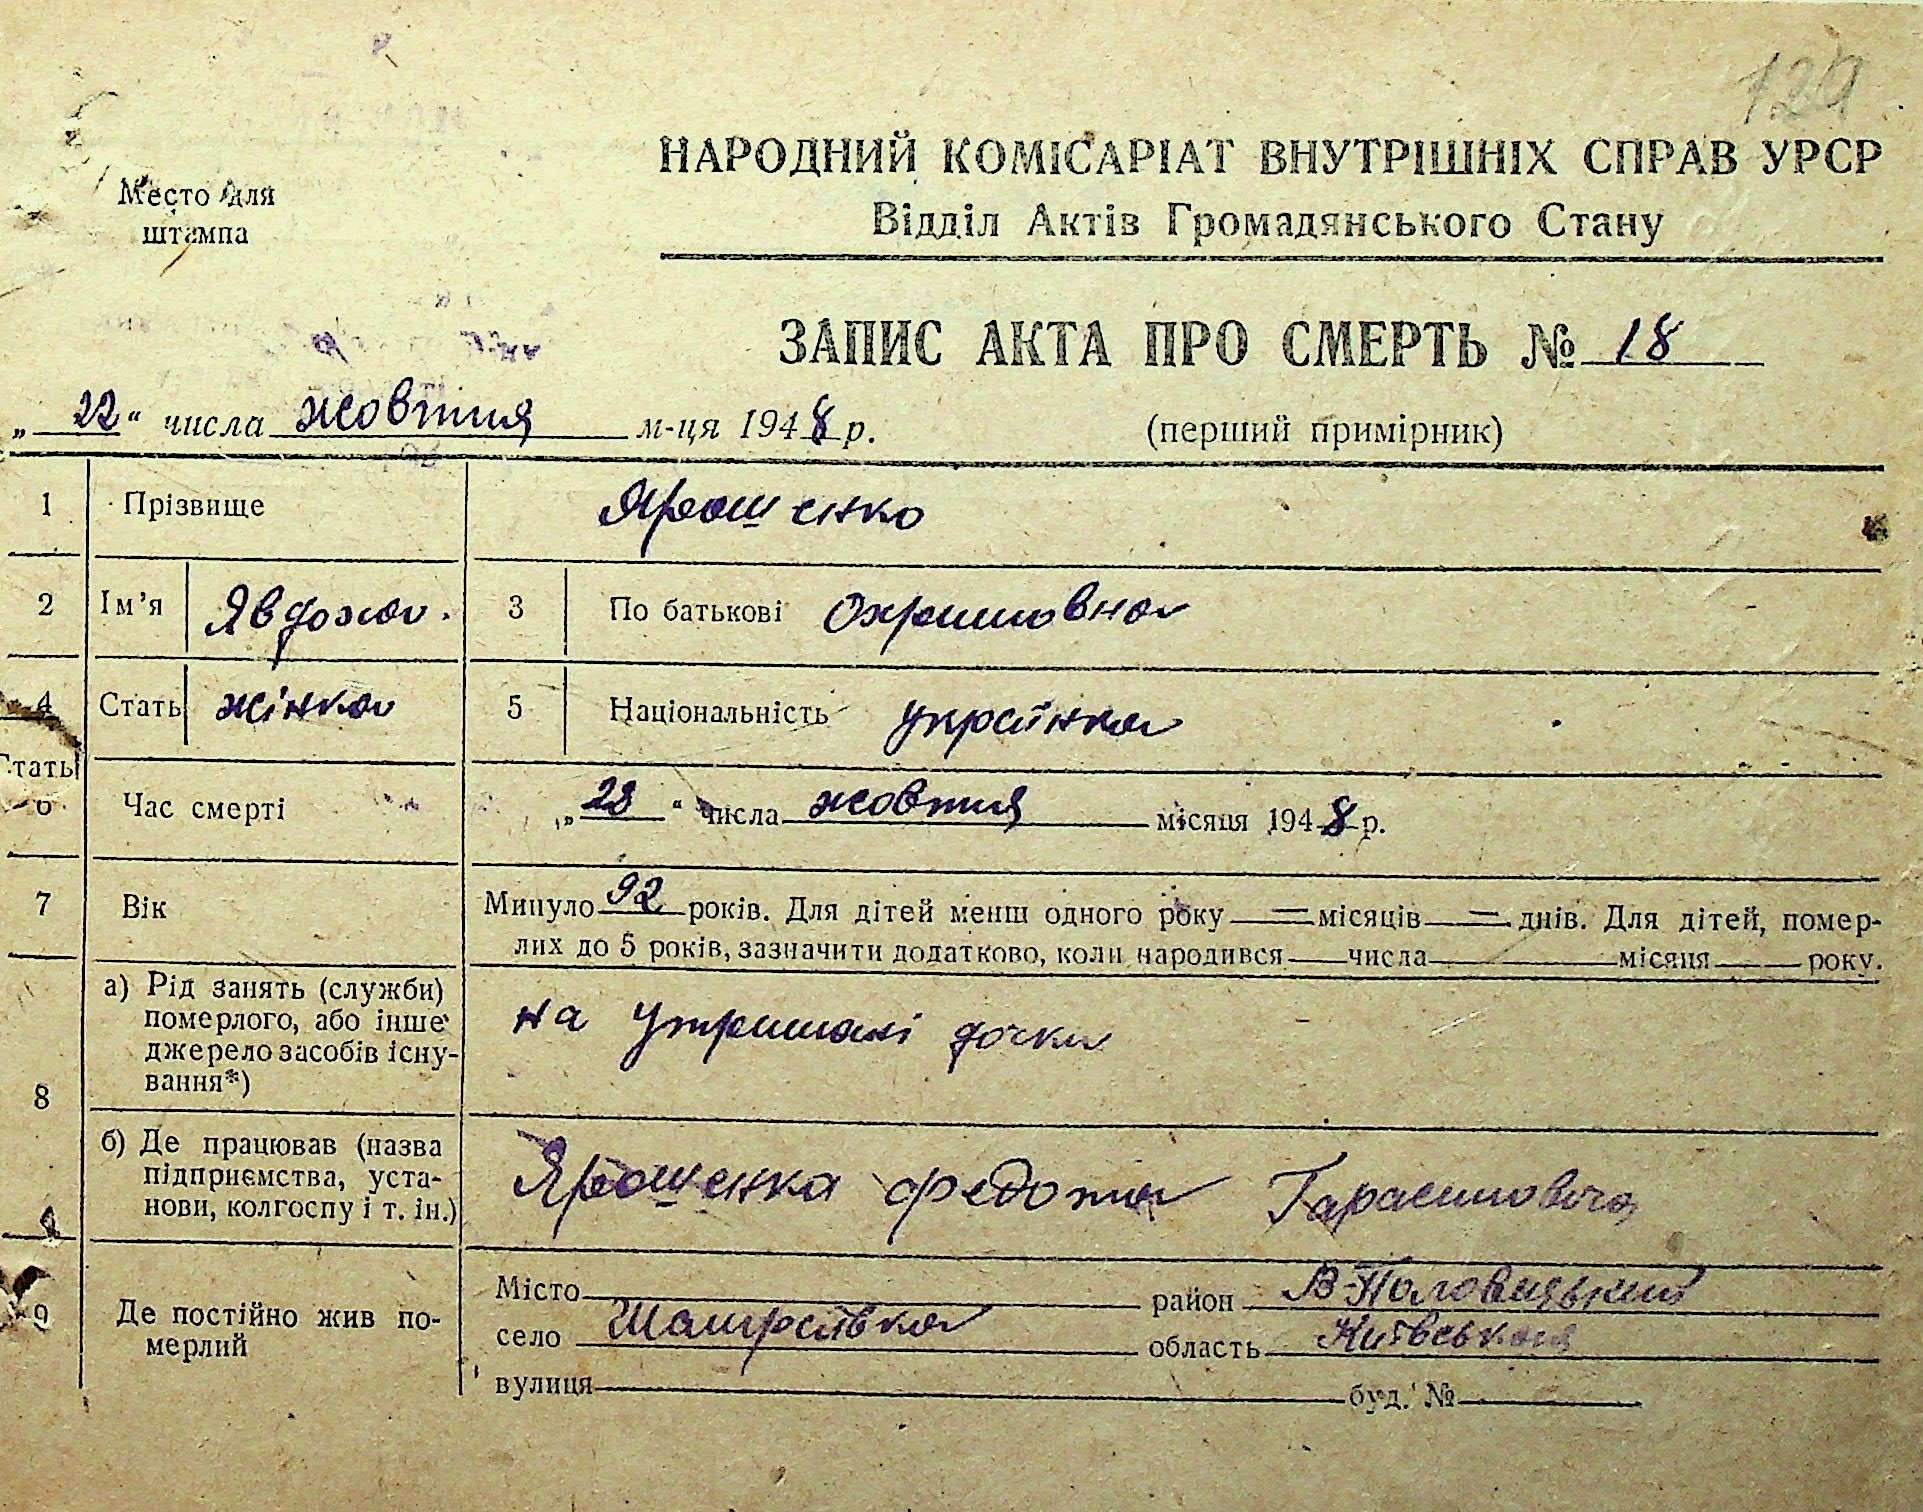 129
Место для
штампа
НАРОДНИЙ КОМІСАРІАТ ВНУТРІШНІХ СПРАВ УРСР
Відділ Актів Громадянського Стану
ЗАПИС АКТА ПРО СМЕРТЬ № 18
„22“ числа жовтня м-ця 1948 р.
(перший примірник)
1 Прізвище Ярошенко
2 Ім’я Явдоха. 3 По батькові Охримовна
4 Стать жінка 5 Національність українка
Стать
6 Час смерті „22“ числа жовтня місяця 1948 р.
7 Вік Минуло 92 років. Для дітей менш одного року — місяців — днів. Для дітей, помер-
лих до 5 років, зазначити додатково, коли народився — числа місяця року.
8 а) Рід занять (служби)
померлого, або інше
джерело засобів існу-
вання*)
на утримані дочки
б) Де працював (назва
підприємства, уста-
нови, колгоспу і т. ін.)
Ярошенка Федота Гарасимовича
9 Де постійно жив по-
мерлий
Місто район В-Половецький
село Шамраївка область Київська
вулиця буд. №